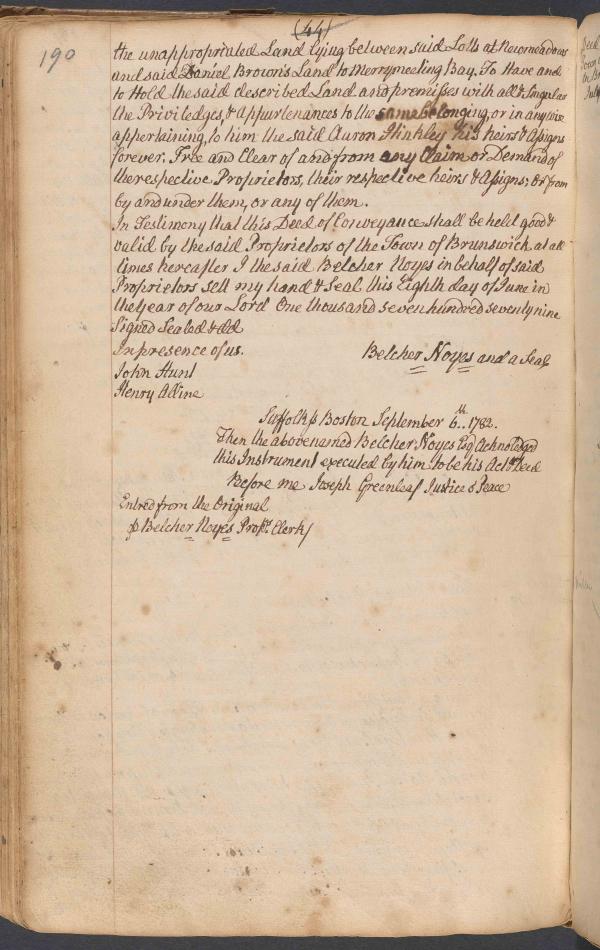 (44)
190
the unappropriated Land lying between said Lotts at Newmeadows
and said Daniel Brown's Land to Merrymeeting Bay. To Have and
to Hold the said described Land and premisses with all & Singular
the Priviledges, & Appurtenances to the same belonging, or in any wise
appertaining, to him the said Aaron Hinkley his heirs & Assigns
forever. Free and Clear of and from any Claim or Demand of
the respective Proprietors, their respective heirs & Assigns; or from
by and under them, or any of them.
In Testimony that this Deed of Conveyance shall be held good &
valid by the said Proprietors of the Town of Brunswick at all
times hereafter I the said Belcher Noyes in behalf of said
Proprietors sett my hand & Seal this Eighth day of June in
the Year of our Lord One thousand seven hundred seventy nine
Signed Sealed & dd
In presence of us. Belcher Noyes and a Seal
John Hunt
Henry Alline
Suffolk ss Boston September 6th. 1782.
Then the abovenamed Belcher Noyes Esq Acknoledged
this Instrument executed by him to be his Act & Deed
Before me Joseph Greenleaf Justice o Peace
Entred from the Original
p Belcher Noyes Propr. Clerk